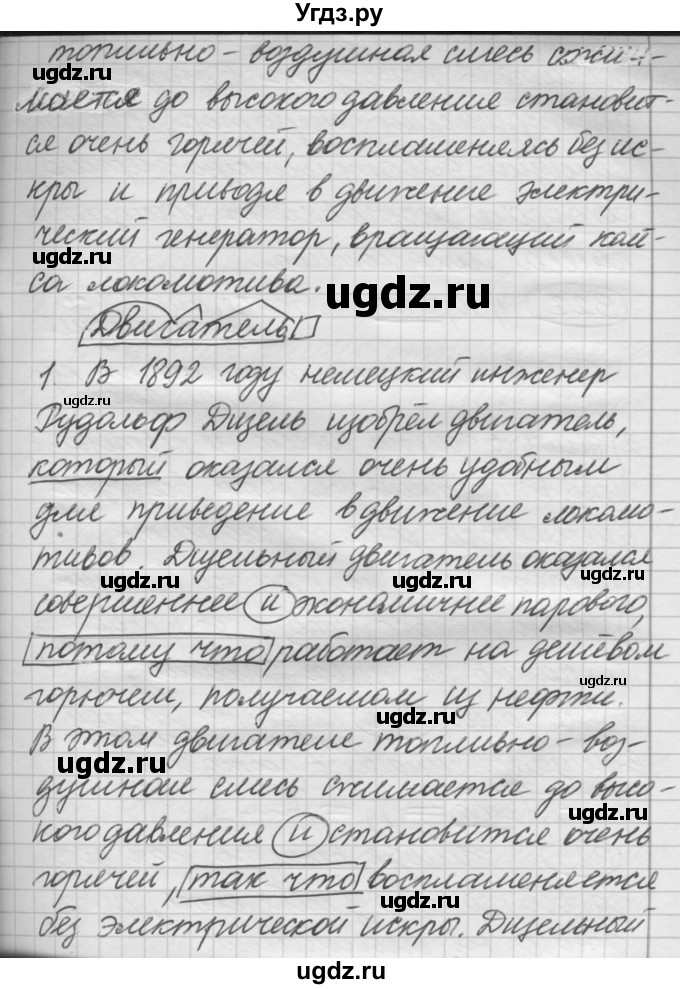 Угдз.ру
топливно - воздушная смесь сжи-
мается до высокого давления становит-
ся очень горячей, воспламеняясь без ис-
кры и приводя в движение электри-
ческий генератор, вращающий колё-
са локомотива.
ugdz.ru
Двигатель
1 В 1892 году немецкий инженер
Рудольф Дизель изобрёл двигатель,
который оказался очень удобным
для приведение в движение локомо-
тивов. Дизельный двигатель оказался
совершеннее и экономичнее парового,
потому что работает на дешёвом
горючем, получаемом из нефти.
В этом двигателе топливно - воз-
душная смесь сжимается до высо-
кого давления и становится очень
горячей, так что воспламеняется
без электрической искры. Дизельный
ugdz.ru